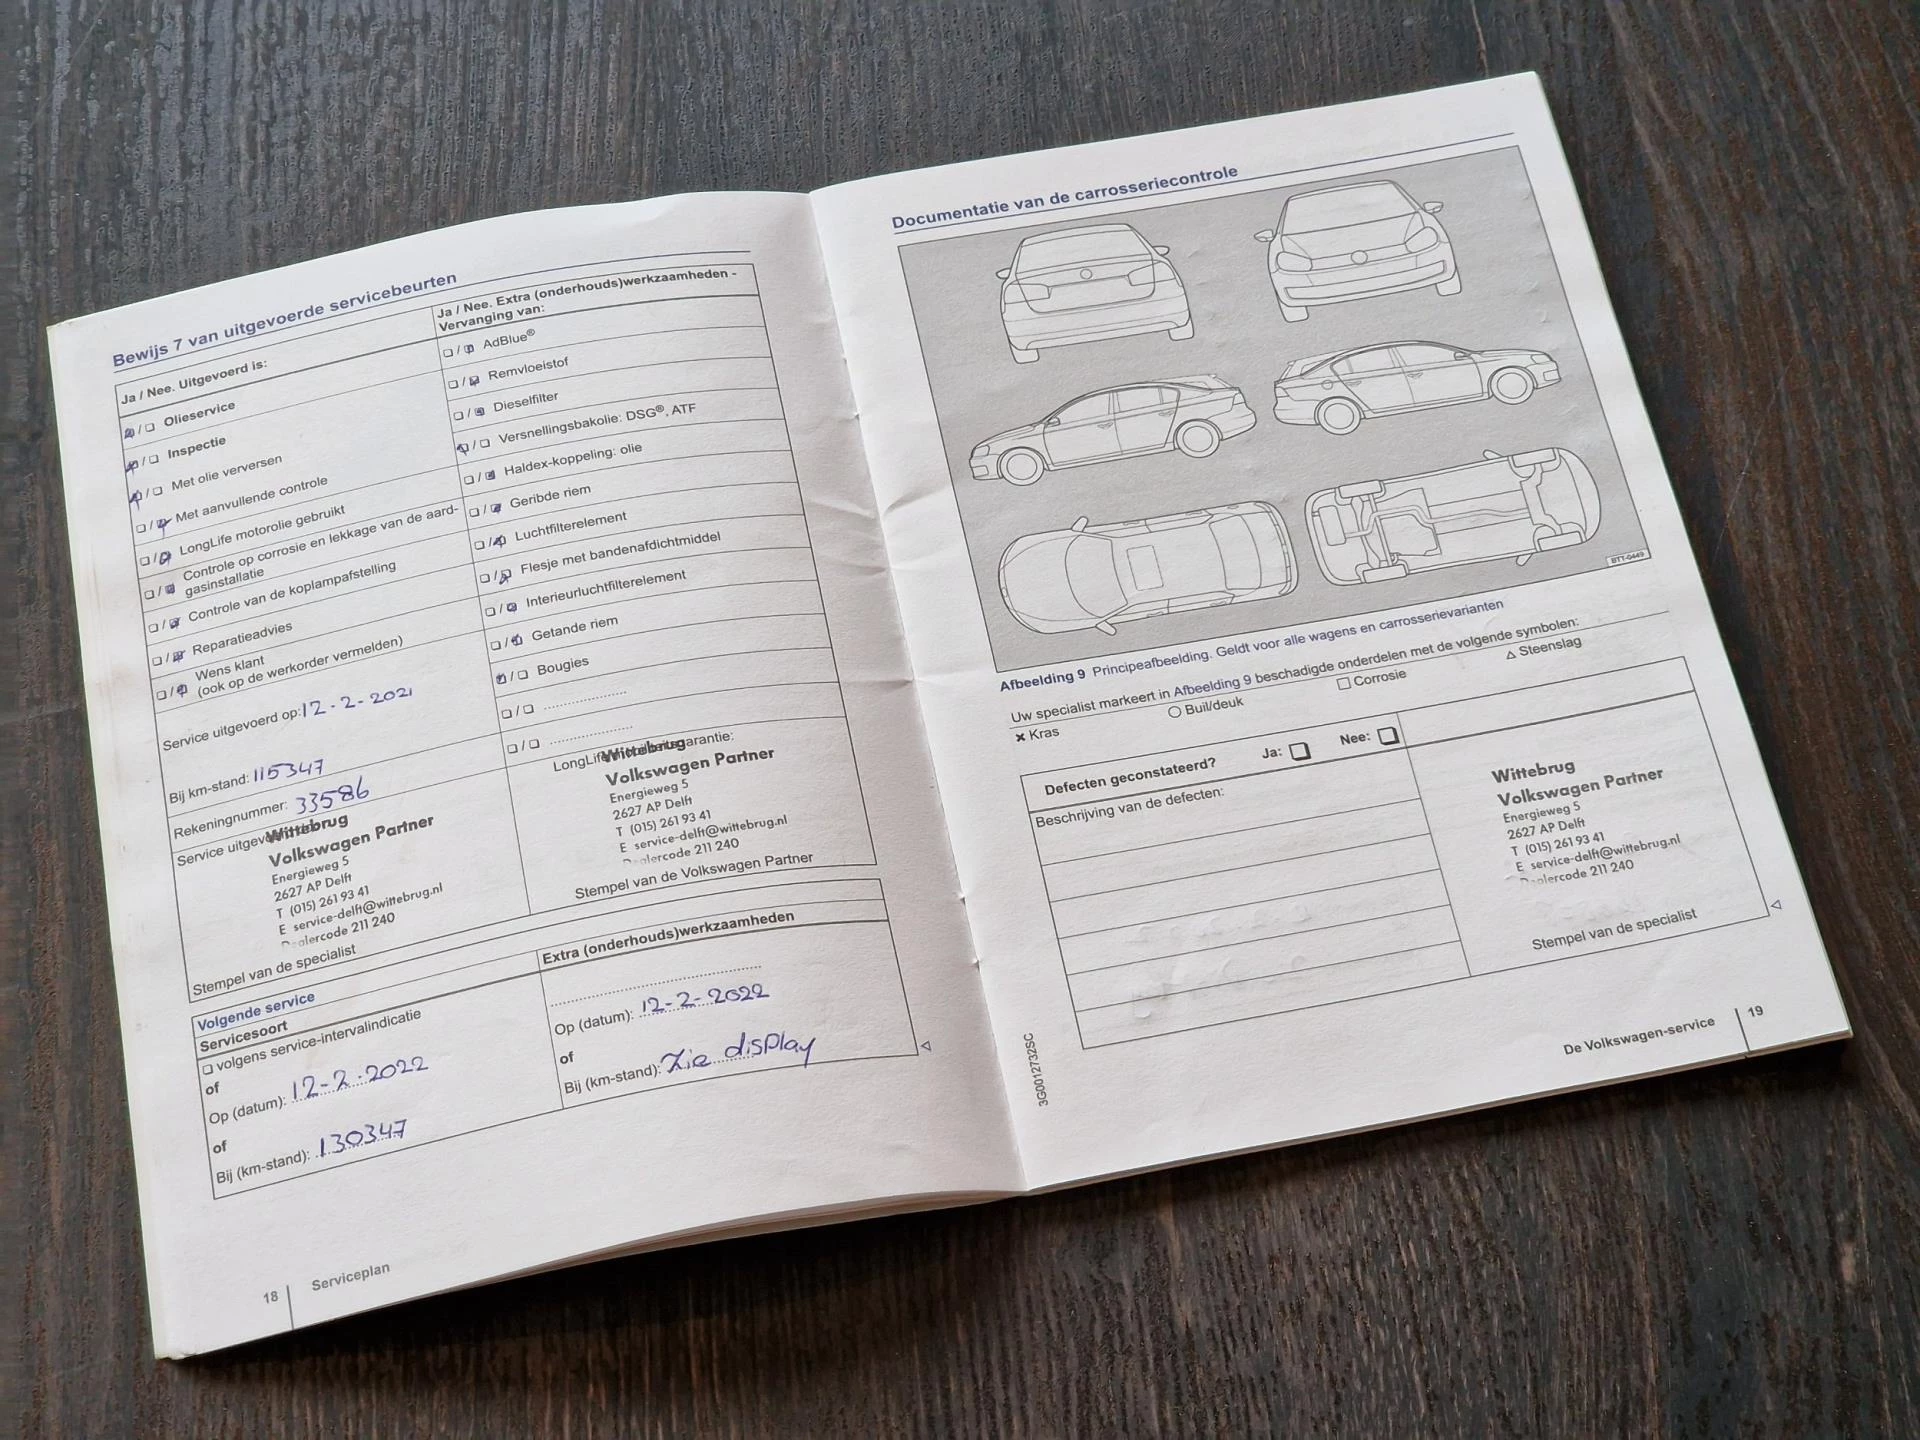 Bewijs 7 van uitgevoerde servicebeurten
Ja / Nee. Uitgevoerd is:
Olieservice
Inspectie
Met olie verversen
Met aanvullende controle
LongLife motorolie gebruikt
Controle op corrosie en lekkage van de aard-
gasinstallatie
Controle van de koplampafstelling
Reparatieadvies
Wens klant
(ook op de werkorder vermelden)
Service uitgevoerd op: 12-2-2021
Bij km-stand: 115347
Rekeningnummer: 33586
Service uitgevoe
Wittebrug
Volkswagen Partner
Energieweg 5
2627 AP Delft
T (015) 261 93 41
E service-delft@wittebrug.nl
Dealercode 211 240
Stempel van de specialist
Ja / Nee. Extra (onderhouds)werkzaamheden -
Vervanging van:
AdBlue®
Remvloeistof
Dieselfilter
Versnellingsbakolie: DSG®, ATF
Haldex-koppeling: olie
Geribde riem
Luchtfilterelement
Flesje met bandenafdichtmiddel
Interieurluchtfilterelement
Getande riem
Bougies
LongLife garantie:
Wittebrug
Volkswagen Partner
Energieweg 5
2627 AP Delft
T (015) 261 93 41
E service-delft@wittebrug.nl
Dealercode 211 240
Stempel van de Volkswagen Partner
Volgende service
Servicesoort
volgens service-intervalindicatie
of
Op (datum): 12-2-2022
of
Bij (km-stand): 130347
Extra (onderhouds)werkzaamheden
Op (datum): 12-2-2022
of
Bij (km-stand): Zie display
18 Serviceplan
Documentatie van de carrosseriecontrole
BTT-0449
Afbeelding 9 Principeafbeelding. Geldt voor alle wagens en carrosserievarianten
Uw specialist markeert in Afbeelding 9 beschadigde onderdelen met de volgende symbolen:
Kras Buil/deuk Corrosie Steenslag
Defecten geconstateerd? Ja: Nee:
Beschrijving van de defecten:
Wittebrug
Volkswagen Partner
Energieweg 5
2627 AP Delft
T (015) 261 93 41
E service-delft@wittebrug.nl
Dealercode 211 240
Stempel van de specialist
3G0012732SC
De Volkswagen-service 19